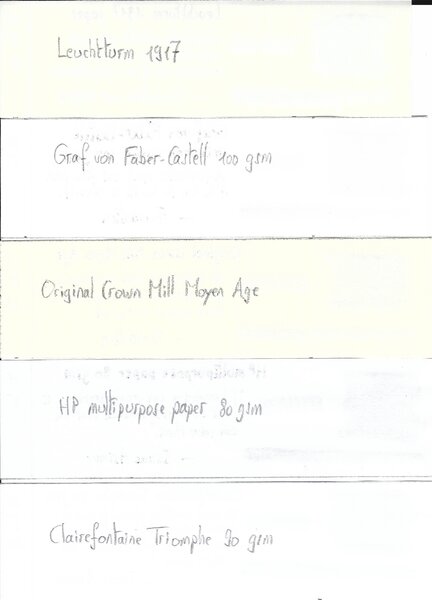 Leuchtturm 1917
Graf von Faber-Castell 100 gsm
Original Crown Mill Moyen Age
HP multipurpose paper 80 gsm
Clairefontaine Triomphe 90 gsm